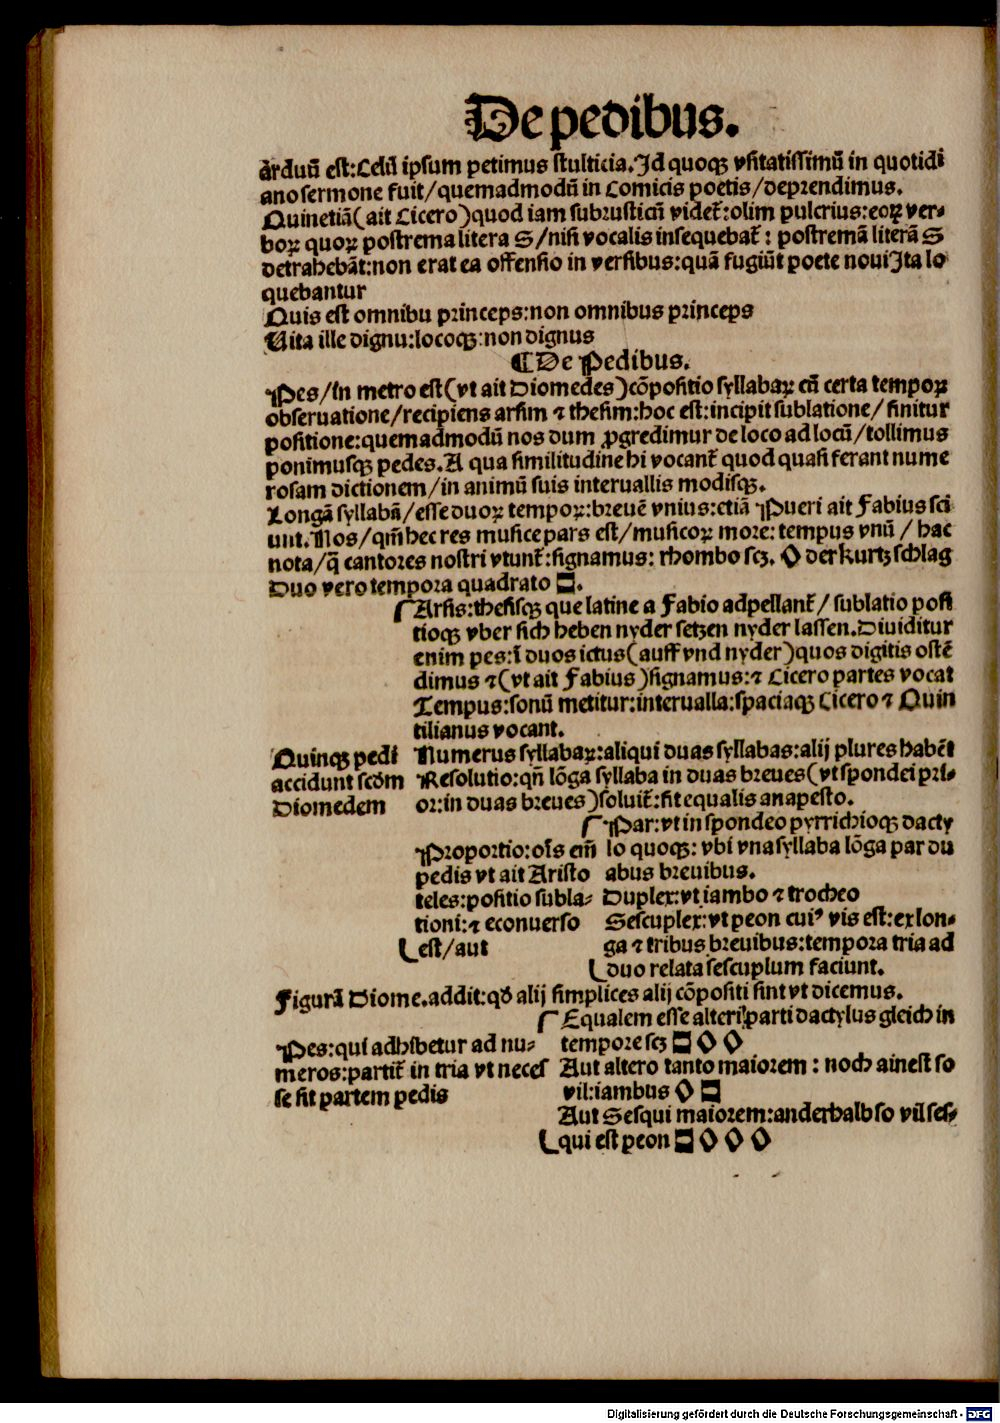 De pedibus.
arduũ est:Celũ ipsum petimus stulticia.Id quoqꝫ vsitatissimũ in quotidi
ano sermone fuit/quemadmodũ in Comicis poetis/deprendimus.
Quinetiã(ait Cicero)quod iam subrusticũ videt̃:olim pulcrius:eoꝝ ver-
boꝝ quoꝝ postrema litera S/nisi vocalis insequebat̃: postremã literã S
detrahebãt:non erat ea offensio in versibus:quã fugiũt poete noui Ita lo
quebantur
Quis est omnibu princeps:non omnibus princeps
Vita ille dignu:locoqꝫ:non dignus
¶De Pedibus.
Pes/in metro est(vt ait Diomedes)cõpositio syllabaꝝ cũ certa tempoꝝ
obseruatione/recipiens arsim ⁊ thesim:hoc est:incipit sublatione/finitur
positione:quemadmodũ nos dum ꝓgredimur de loco ad locũ/tollimus
ponimusqꝫ pedes.A qua similitudine hi vocant̃ quod quasi ferant nume
rosam dictionem/in animũ suis interuallis modisqꝫ.
Longã syllabã/esse duoꝝ tempoꝝ:breuẽ vnius:etiã Pueri ait Fabius sci
unt.Nos/qm̃ hec res musice pars est/musicoꝝ more:tempus vnũ / hac
nota/q̃ cantores nostri vtunt̃:signamus: rhombo scꝫ. ◊ der kurtz schlag
Duo vero tempora quadrato □.
Arsis:thesisqꝫ que latine a Fabio adpellant̃/ sublatio posi
tioqꝫ vber sich heben nyder setzen nyder lassen.Diuiditur
enim pes:ĩ duos ictus(auff vnd nyder)quos digitis ostẽ
dimus ⁊(vt ait Fabius)signamus:⁊ Cicero partes vocat
Tempus:sonũ metitur:interualla:spaciaqꝫ Cicero ⁊ Quin
tilianus vocant.
Quinqꝫ pedi
accidunt scd̃m
Diomedem
Numerus syllabaꝝ:aliqui duas syllabas:alij plures habẽt
Resolutio:qñ lõga syllaba in duas breues(vt spondei pri-
or:in duas breues)soluit̃:fit equalis anapesto.
Proportio:oĩs em̃
pedis vt ait Aristo
teles:positio subla-
tioni:⁊ econuerso
est/aut
Par:vt in spondeo pyrrichioqꝫ dacty
lo quoqꝫ: vbi vna syllaba lõga par du
abus breuibus.
Duplex:vt iambo ⁊ trocheo
Sescuplex:vt peon cuiꝰ vis est:ex lon-
ga ⁊ tribus breuibus:tempora tria ad
duo relata sescuplum faciunt.
Figurã Diome.addit:qđ alij simplices alij cõpositi sint vt dicemus.
Pes:qui adhibetur ad nu-
meros:partit̃ in tria vt neces
se sit partem pedis
Equalem esse alteri parti dactylus gleich in
tempore scꝫ □ ◊ ◊
Aut altero tanto maiorem : noch ainest so
vil:iambus ◊ □
Aut Sesqui maiorem:anderhalb so vil ses-
qui est peon □ ◊ ◊ ◊
Digitalisierung gefördert durch die Deutsche Forschungsgemeinschaft - DFG